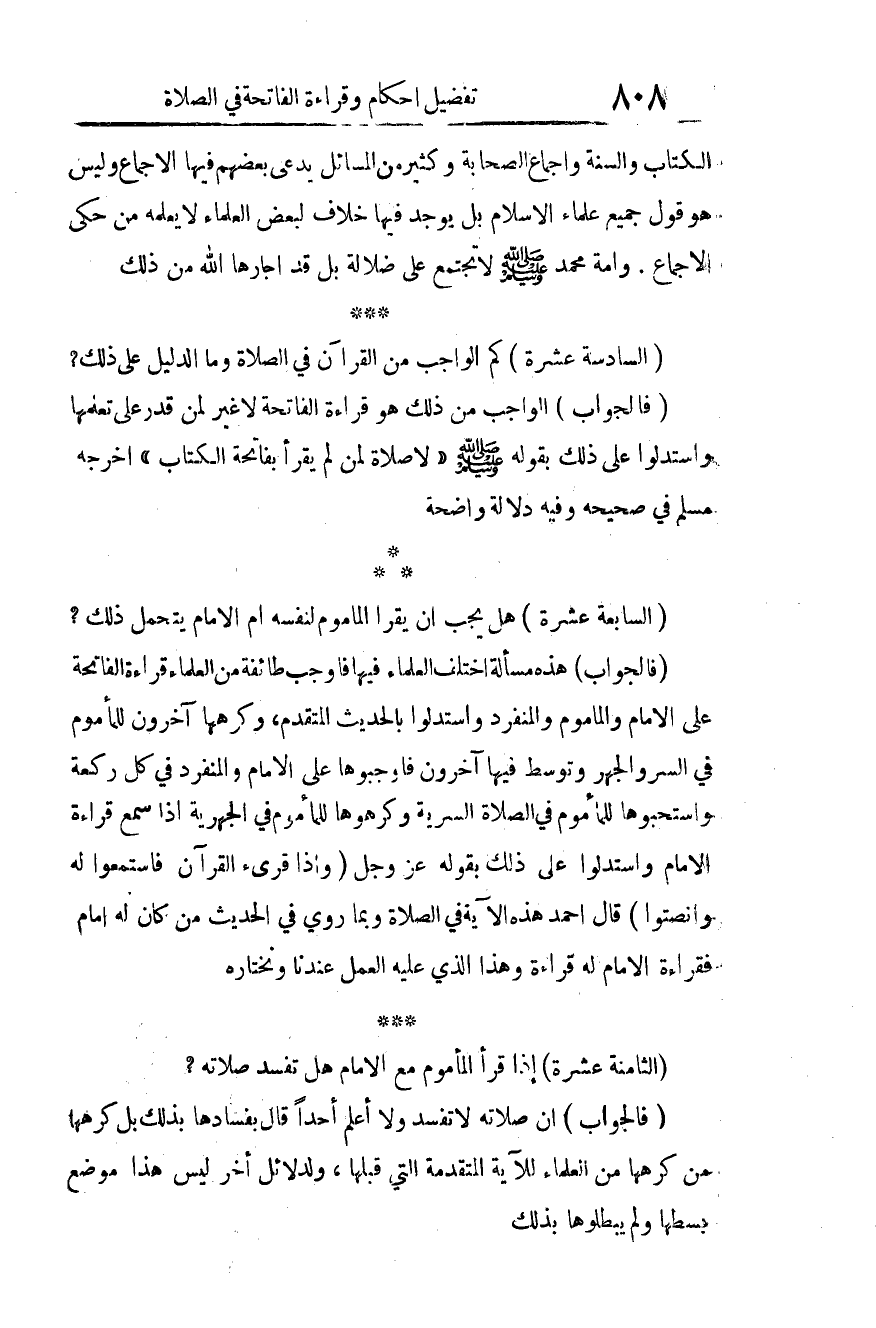 ٨٠٨ تفضيل احكام وقراءة الفاتحة في الصلاة
الكتاب والسنة واجماع الصحابة وكثير من المسائل يدعى بعضهم فيها الاجماع وليس
هو قول جميع علماء الاسلام بل يوجد فيها خلاف لبعض العلماء لا يعلمه من حكى
الاجماع . وامة محمد ﷺ لا تجتمع على ضلالة بل قد اجارها الله من ذلك
***
( السادسة عشرة ) كم الواجب من القرآن في الصلاة وما الدليل على ذلك؟
( فالجواب ) الواجب من ذلك هو قراءة الفاتحة لا غير لمن قدر على تعلمها
واستدلوا على ذلك بقوله ﷺ « لا صلاة لمن لم يقرأ بفاتحة الكتاب » اخرجه
مسلم في صحيحه وفيه دلالة واضحة
*
* *
( السابعة عشرة ) هل يجب ان يقرا الماموم لنفسه ام الامام يتحمل ذلك ؟
(فالجواب) هذه مسألة اختلف العلماء فيها فاوجب طائفة من العلماء قراءة الفاتحة
على الامام والماموم والمنفرد واستدلوا بالحديث المتقدم، وكرهها آخرون للمأموم
في السر والجهر وتوسط فيها آخرون فاوجبوها على الامام والمنفرد في كل ركعة
واستحبوها للمأموم في الصلاة السرية وكرهوها للمأموم في الجهرية اذا سمع قراءة
الامام واستدلوا على ذلك بقوله عز وجل ( واذا قرىء القرآن فاستمعوا له
وانصتوا ) قال احمد هذه الآية في الصلاة وبما روي في الحديث من كان له إمام
فقراءة الامام له قراءة وهذا الذي عليه العمل عندنا ونختاره
***
(الثامنة عشرة) إذا قرأ المأموم مع الامام هل تفسد صلاته ؟
( فالجواب ) ان صلاته لا تفسد ولا أعلم أحداً قال بفسادها بذلك بل كرهها
من كرهها من العلماء للآية المتقدمة التي قبلها ، ولدلائل أخر ليس هذا موضع
بسطها ولم يبطلوها بذلك